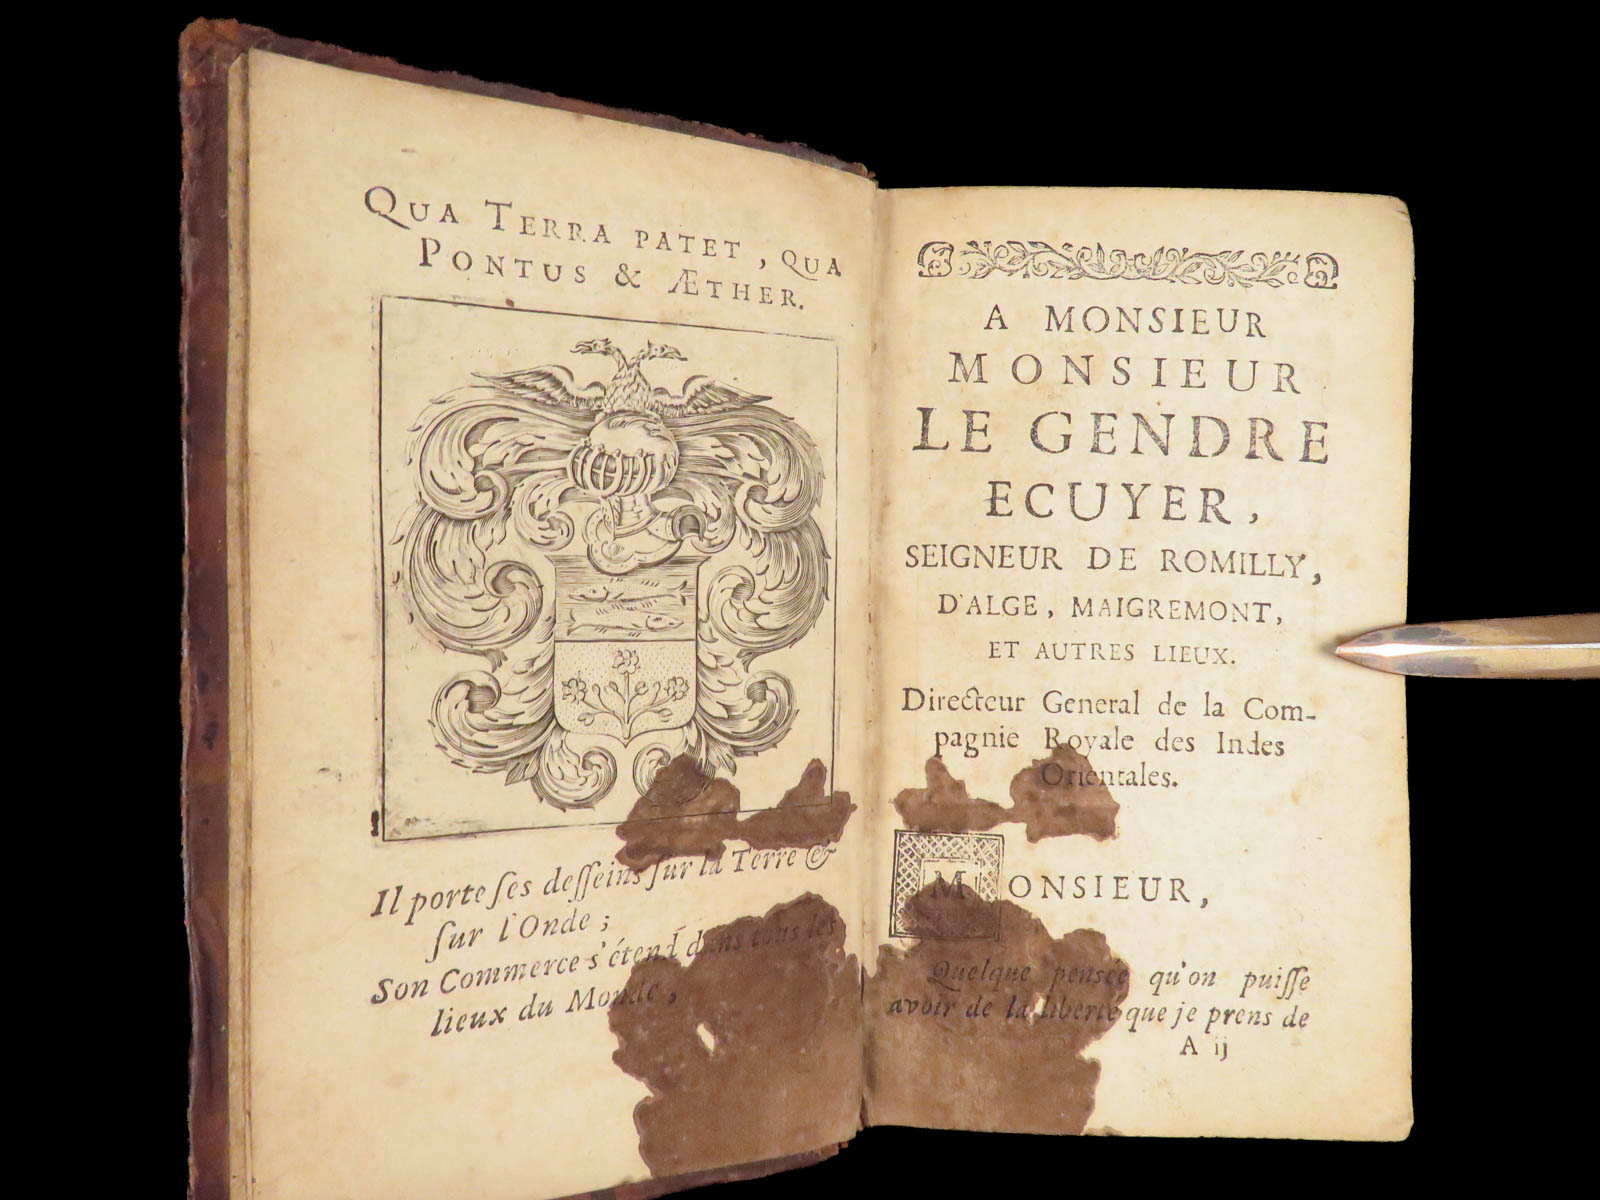 QUA TERRA PATET, QUA
PONTUS & ÆTHER.
Il porte ſes deſſeins ſur la Terre &
ſur l'Onde ;
Son Commerce s'étend dans tous les
lieux du Monde,
A MONSIEUR
MONSIEUR
LE GENDRE
ECUYER,
SEIGNEUR DE ROMILLY,
D'ALGE, MAIGREMONT,
ET AUTRES LIEUX.
Directeur General de la Com-
pagnie Royale des Indes
Orientales.
MONSIEUR,
Quelque pensée qu'on puiſſe
avoir de la liberté que je prens de
A ij